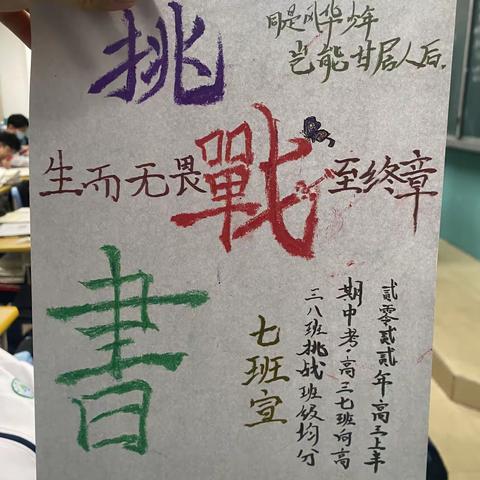 挑戰書
同是风华少年
岂能甘居人后.
生而无畏戰至终章
贰零贰贰年高三上半
期中考·高三七班向高
三八班挑战班级均分
七班宣